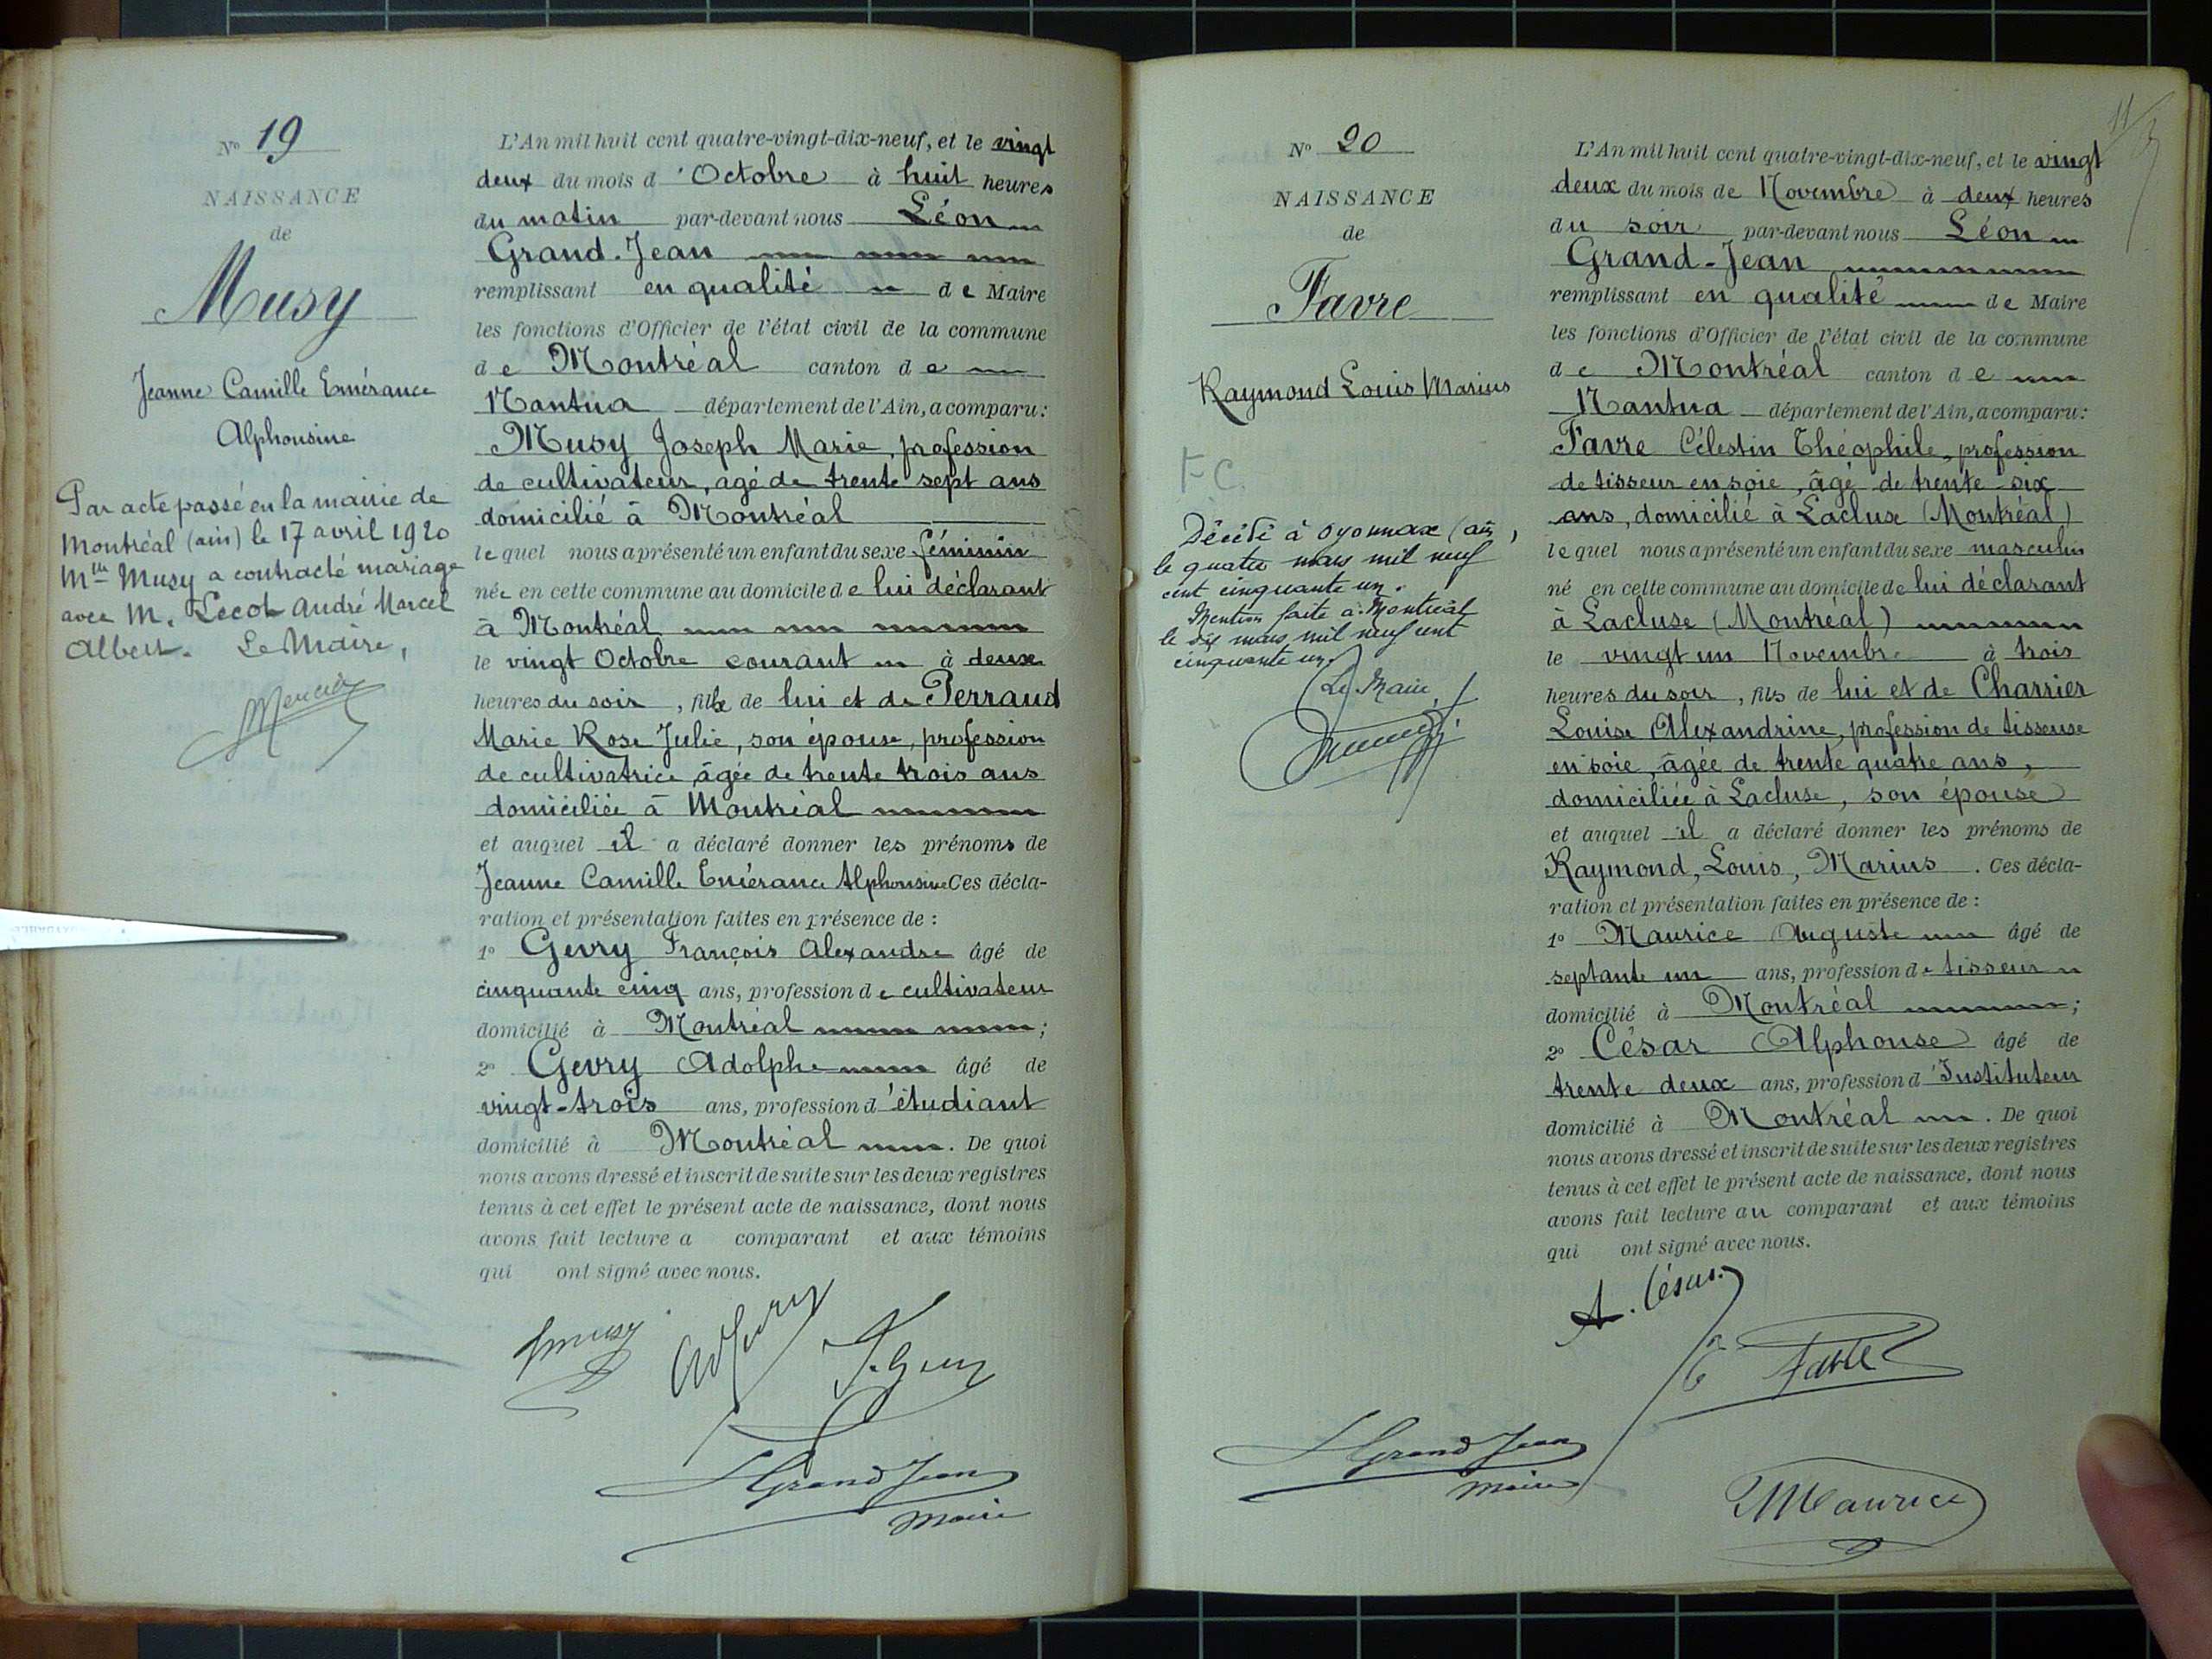 N° 19
NAISSANCE
de
Musy
Jeanne Camille Emérance
Alphonsine
Par acte passé en la mairie de
Montréal (ain) le 17 avril 1920
Mlle Musy a contracté mariage
avec M. Lecot André Marcel
Albert. Le Maire,
L'An mil huit cent quatre-vingt-dix-neuf, et le vingt
deux du mois d'Octobre à huit heures
du matin par-devant nous Léon
Grand-Jean
remplissant en qualité de Maire
les fonctions d'Officier de l'état civil de la commune
de Montréal canton de
Nantua département de l'Ain, a comparu:
Musy Joseph Marie, profession
de cultivateur, agé de trente sept ans
domicilié à Montréal
lequel nous a présenté un enfant du sexe féminin
née en cette commune au domicile de lui déclarant
à Montréal
le vingt Octobre courant à deux
heures du soir, fille de lui et de Perraud
Marie Rose Julie, son épouse, profession
de cultivatrice âgée de trente trois ans
domiciliée à Montréal
et auquel il a déclaré donner les prénoms de
Jeanne Camille Emérance Alphonsine Ces décla-
ration et présentation faites en présence de :
1° Gevry François Alexandre âgé de
cinquante cinq ans, profession de cultivateur
domicilié à Montréal ;
2° Gevry Adolphe âgé de
vingt-trois ans, profession d'étudiant
domicilié à Montréal . De quoi
nous avons dressé et inscrit de suite sur les deux registres
tenus à cet effet le présent acte de naissance, dont nous
avons fait lecture a comparant et aux témoins
qui ont signé avec nous.
Musy
LGrand Jean
Maire
N° 20
NAISSANCE
de
Favre
Raymond Louis Marius
F.C.
Décédé à Oyonnax (ain),
le quatre mars mil neuf
cent cinquante un.
Mention faite à Montréal
le dix mars mil neuf cent
cinquante un.
Le Maire
11
L'An mil huit cent quatre-vingt-dix-neuf, et le vingt
deux du mois de Novembre à deux heures
du soir par-devant nous Léon
Grand-Jean
remplissant en qualité de Maire
les fonctions d'Officier de l'état civil de la commune
de Montréal canton de
Nantua département de l'Ain, a comparu:
Favre Célestin Théophile, profession
de tisseur en soie, âgé de trente six
ans, domicilié à Lacluse (Montréal)
lequel nous a présenté un enfant du sexe masculin
né en cette commune au domicile de lui déclarant
à Lacluse (Montréal)
le vingt un Novembre à trois
heures du soir, fils de lui et de Charrier
Louise Alexandrine, profession de tisseuse
en soie, âgée de trente quatre ans,
domiciliée à Lacluse, son épouse
et auquel il a déclaré donner les prénoms de
Raymond, Louis, Marius . Ces décla-
ration et présentation faites en présence de :
1° Maurice Auguste âgé de
septante un ans, profession de tisseur
domicilié à Montréal ;
2° César Alphonse âgé de
trente deux ans, profession d'Instituteur
domicilié à Montréal . De quoi
nous avons dressé et inscrit de suite sur les deux registres
tenus à cet effet le présent acte de naissance, dont nous
avons fait lecture au comparant et aux témoins
qui ont signé avec nous.
A. César
Favre
LGrand Jean
Maire
Maurice